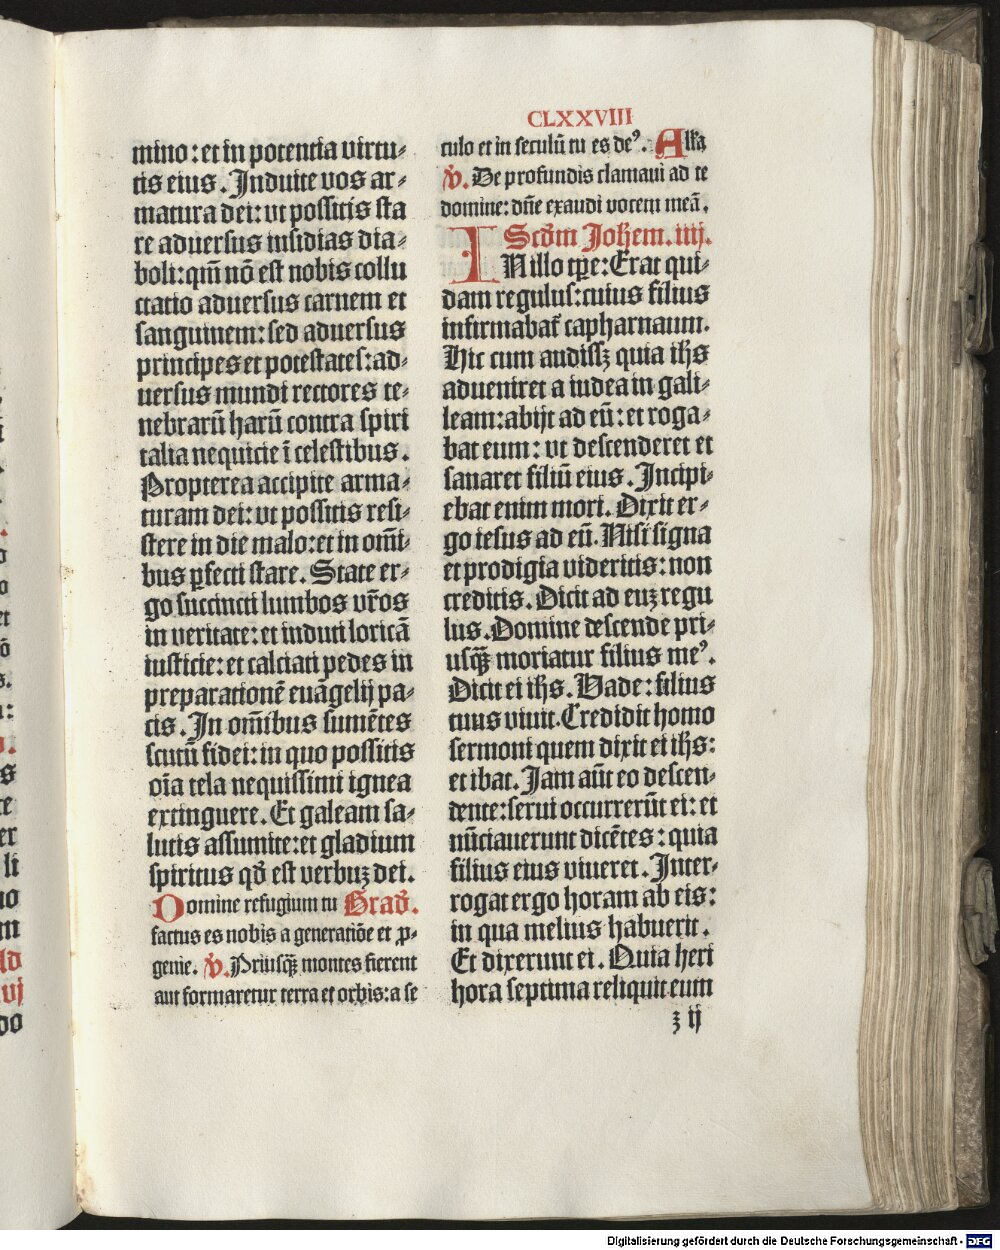 CLXXVIII
mino: et in potentia virtu⸗
tis eius. Induite vos ar⸗
matura dei: vt possitis sta
re aduersus insidias dia⸗
boli: qm̄ nō est nobis collu
ctatio aduersus carnem et
sanguinem: sed aduersus
principes et potestates: ad⸗
uersus mundi rectores te⸗
nebrarū harū contra spiri
talia nequicie ī celestibus.
Propterea accipite arma⸗
turam dei: vt possitis resi⸗
stere in die malo: et in om̄i⸗
bus ꝑfecti stare. State er⸗
go succincti lumbos vr̄os
in veritate: et induti loricā
iusticie: et calciati pedes in
preparationē euāgelij pa⸗
cis. In om̄ibus sumētes
scutū fidei: in quo possitis
oīa tela nequissimi ignea
extinguere. Et galeam sa⸗
lutis assumite: et gladium
spiritus qd̄ est verbuꝫ dei.
Domine refugium tu Grad̄.
factus es nobis a generatiōe et ꝓ⸗
genie. ℣. Priusqꝫ̄ montes fierent
aut formaretur terra et orbis: a se
culo et in seculū tu es deꝰ. Alľa
℣. De profundis clamaui ad te
domine: dn̄e exaudi vocem meā.
Scd̄m Joħem. iiij.
IN illo tꝑe: Erat qui⸗
dam regulus: cuius filius
infirmabat᷑ capharnaum.
Hic cum audissꝫ quia iħs
adueniret a iudea in gali⸗
leam: abijt ad eū: et roga⸗
bat eum: vt descenderet et
sanaret filiū eius. Incipi⸗
ebat enim mori. Dixit er⸗
go iesus ad eū. Nisi signa
et prodigia videritis: non
creditis. Dicit ad euꝫ regu
lus. Domine descende pri⸗
usqꝫ̄ moriatur filius meꝰ.
Dicit ei iħs. Vade: filius
tuus viuit. Credidit homo
sermoni quem dixit ei iħs:
et ibat. Jam aūt eo descen⸗
dente: serui occurrerūt ei: et
nūciauerunt dicētes: quia
filius eius viueret. Inter⸗
rogat ergo horam ab eis:
in qua melius habuerit.
Et dixerunt ei. Quia heri
hora septima reliquit eum
ꝫ ij
Digitalisierung gefördert durch die Deutsche Forschungsgemeinschaft - DFG